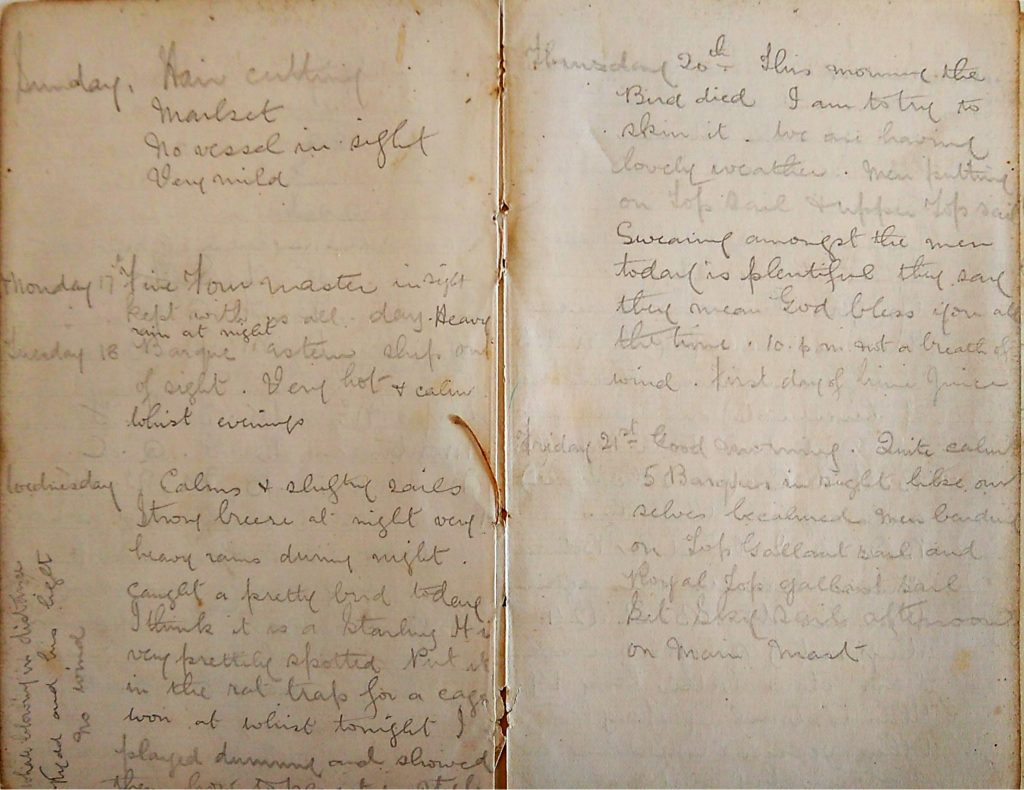 Sunday. Hair cutting
Market
No vessel in sight
Very mild
Monday 17th Five Four master in sight
kept with us all day. Heavy
rain at night
Tuesday 18 Barque astern ship out
of sight. Very hot & calm
Whist evenings
Wednesday Calms & sails
Strong breeze at night very
heavy rains during night.
Caught a pretty bird today
I think it is a Starling It is
very prettily spotted Put it
in the rat trap for a cage
won at whist tonight I
played dummy and showed
in distance
and his light
No wind
Thursday 20th This morning the
Bird died I am to try to
skin it. We are having
lovely weather. Men putting
on Top Sail & upper Top sail
Swearing amongst the men
today is plentiful they say
they mean God bless you all
the time. 10. p.m not a breath of
wind. First day of lime Juice
Friday 21st Good morning. Quite calm
5 Barques in sight like our
selves becalmed Men bending
on Top Gallant sail and
Royal Top gallant sail
Set Sky Sails afternoon
on Main Mast